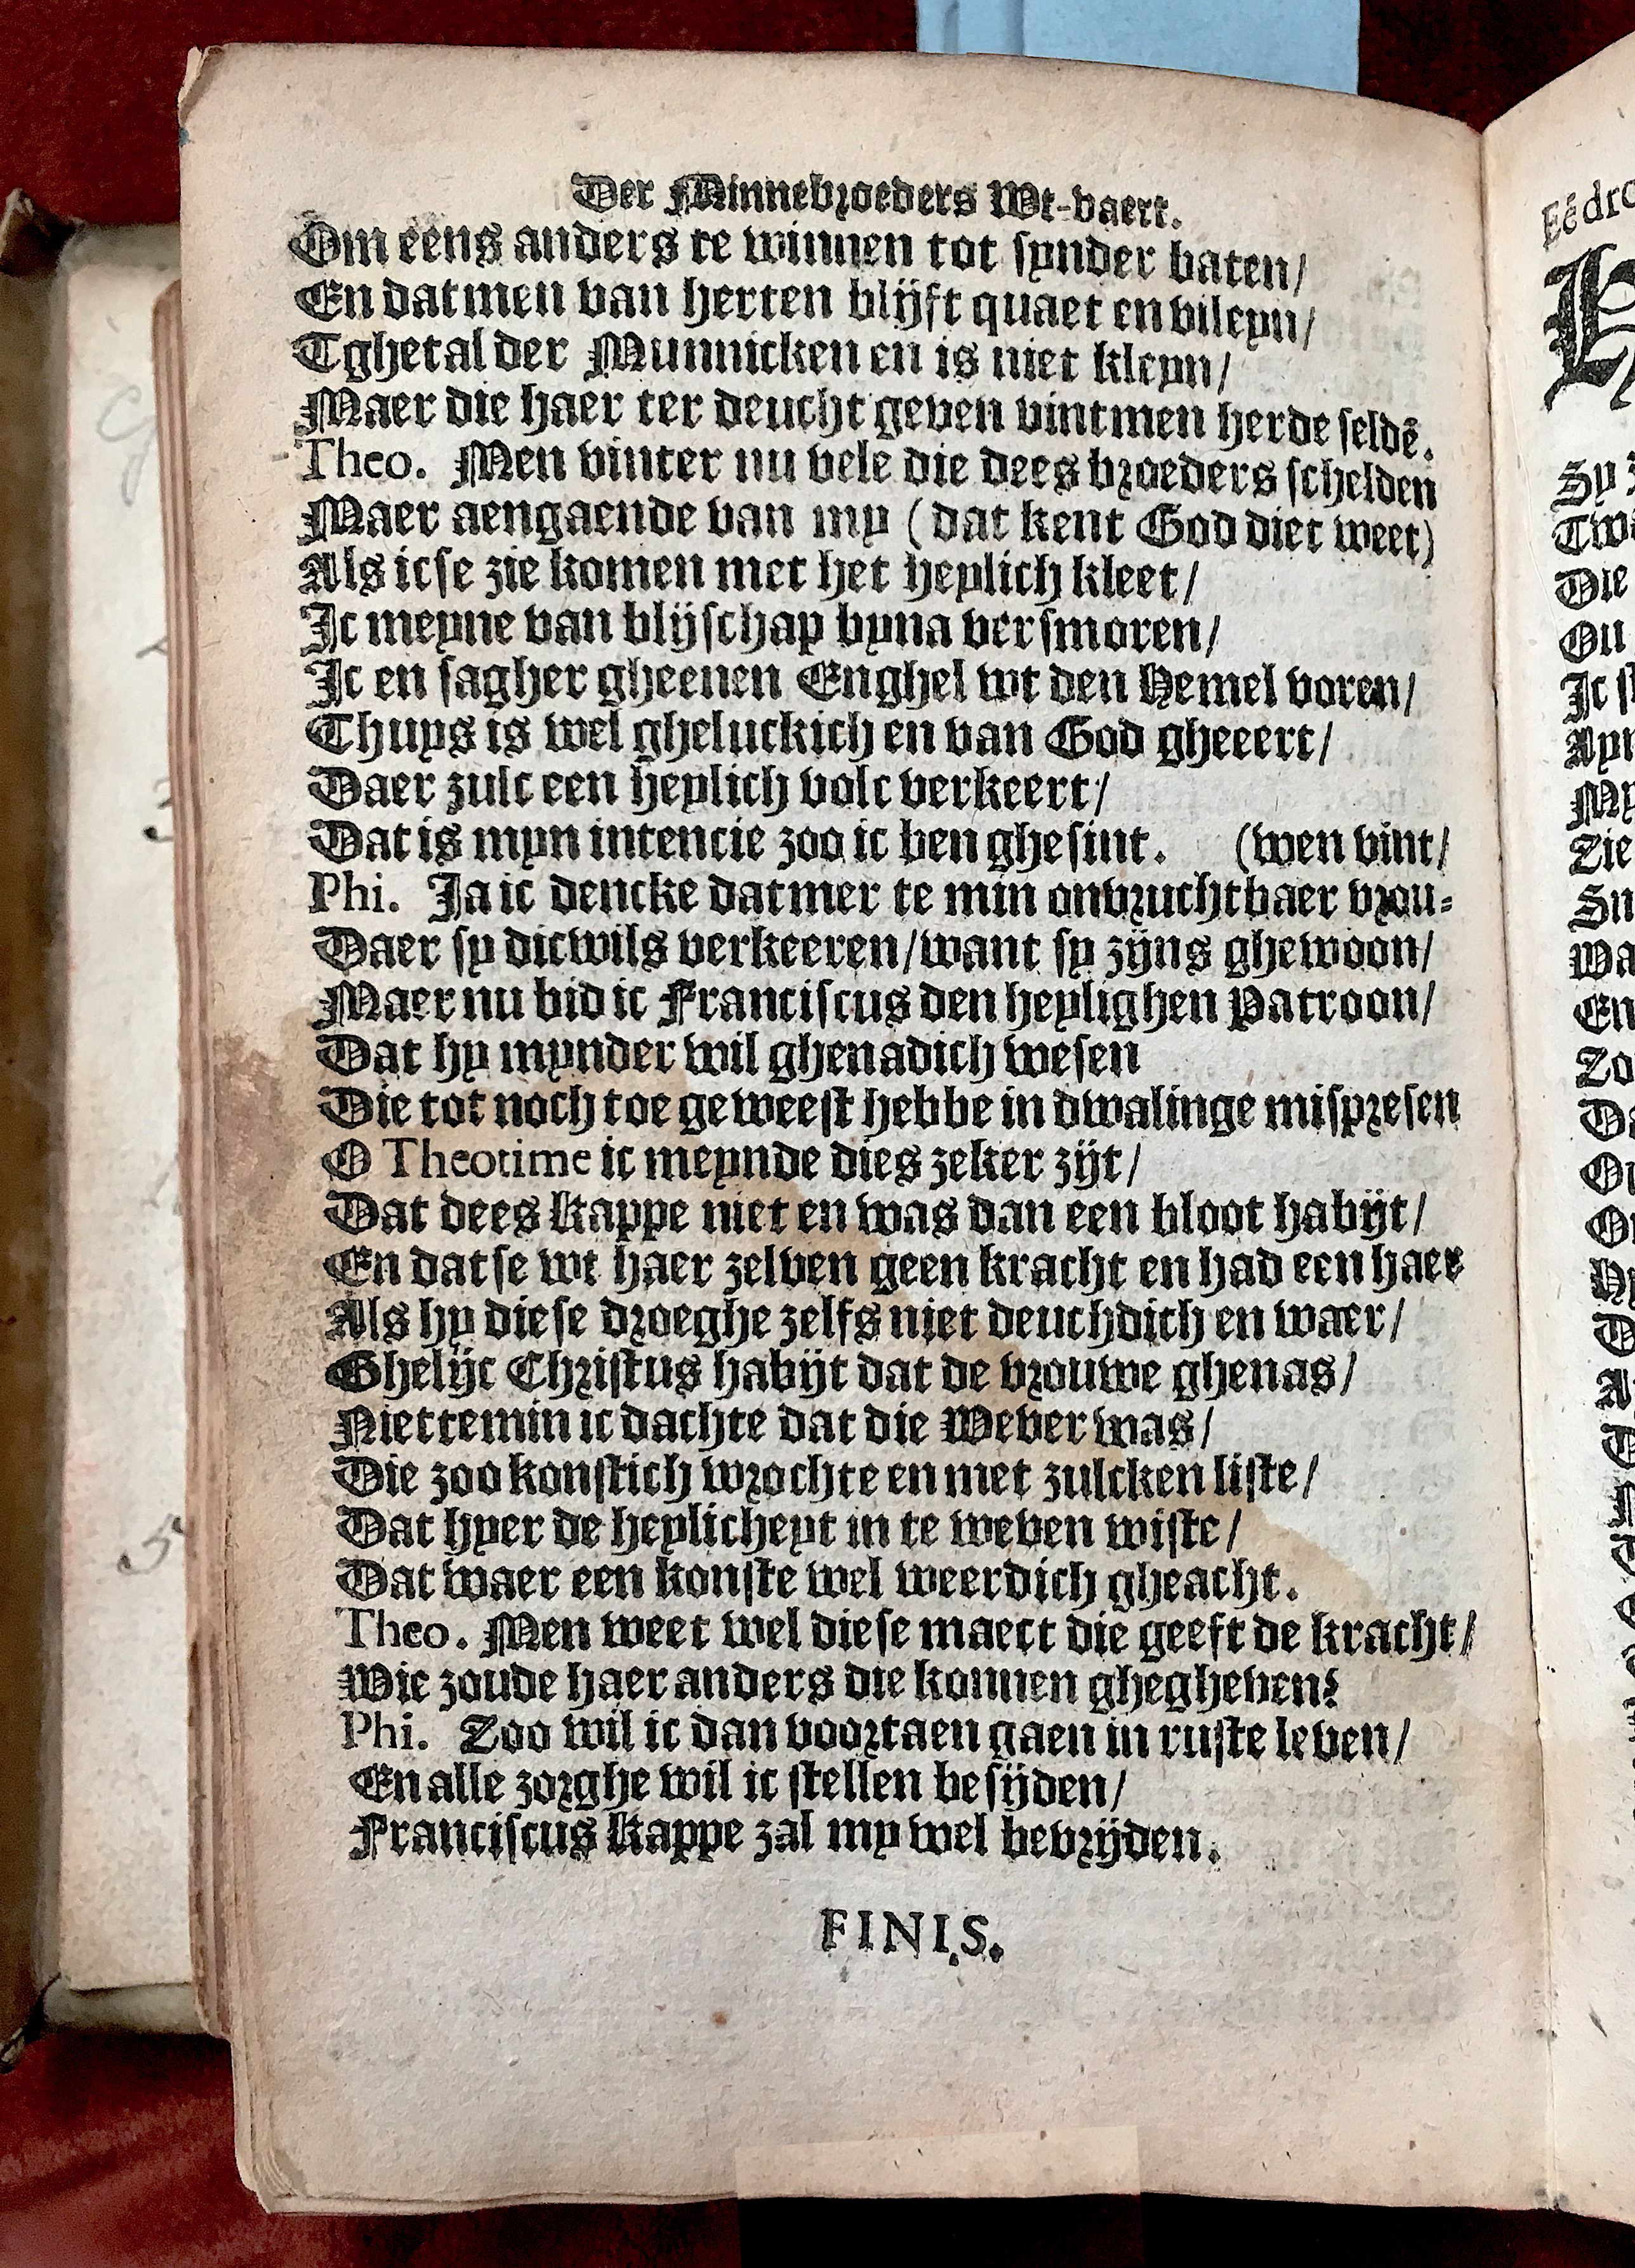 Der Minnebroeders Wt-vaert.
Om eens anders te winnen tot synder baten/
En datmen van herten blijft quaet en vileyn/
Tghetal der Munnicken en is niet kleyn/
Maer die haer ter deucht geven vintmen herde seldē.
Theo. Men vinter nu vele die dees broeders schelden
Maer aengaende van my (dat kent God diet weet)
Als icse zie komen met het heylich kleet/
Ic meyne van blijschap byna versmoren/
Ic en sagher gheenen Enghel wt den Hemel voren/
Thuys is wel gheluckich en van God gheeert/
Daer zulc een heylich volc verkeert/
Dat is myn intencie zoo ic ben ghesint. (wen vint/
Phi. Ja ic dencke datmer te min onvruchtbaer vrou-
Daer sy dicwils verkeeren/want sy zijns ghewoon/
Maer nu bid ic Franciscus den heylighen Patroon/
Dat hy mynder wil ghenadich wesen
Die tot noch toe geweest hebbe in dwalinge mispresen
O Theotime ic meynde dies zeker zijt/
Dat dees Kappe niet en was dan een bloot habijt/
En datse wt haer zelven geen kracht en had een haer
Als hy diese droeghe zelfs niet deuchdich en waer/
Ghelijc Christus habijt dat de vrouwe ghenas/
Niettemin ic dachte dat die Wever was/
Die zoo konstich wrochte en met zulcken liste/
Dat hyer de heylicheyt in te weven wiste/
Dat waer een konste wel weerdich gheacht.
Theo. Men weet wel diese maect die geeft de kracht/
Wie zoude haer anders die konnen ghegheven?
Phi. Zoo wil ic dan voortaen gaen in ruste leven/
En alle zorghe wil ic stellen besijden/
Franciscus Kappe zal my wel bevrijden.
FINIS.